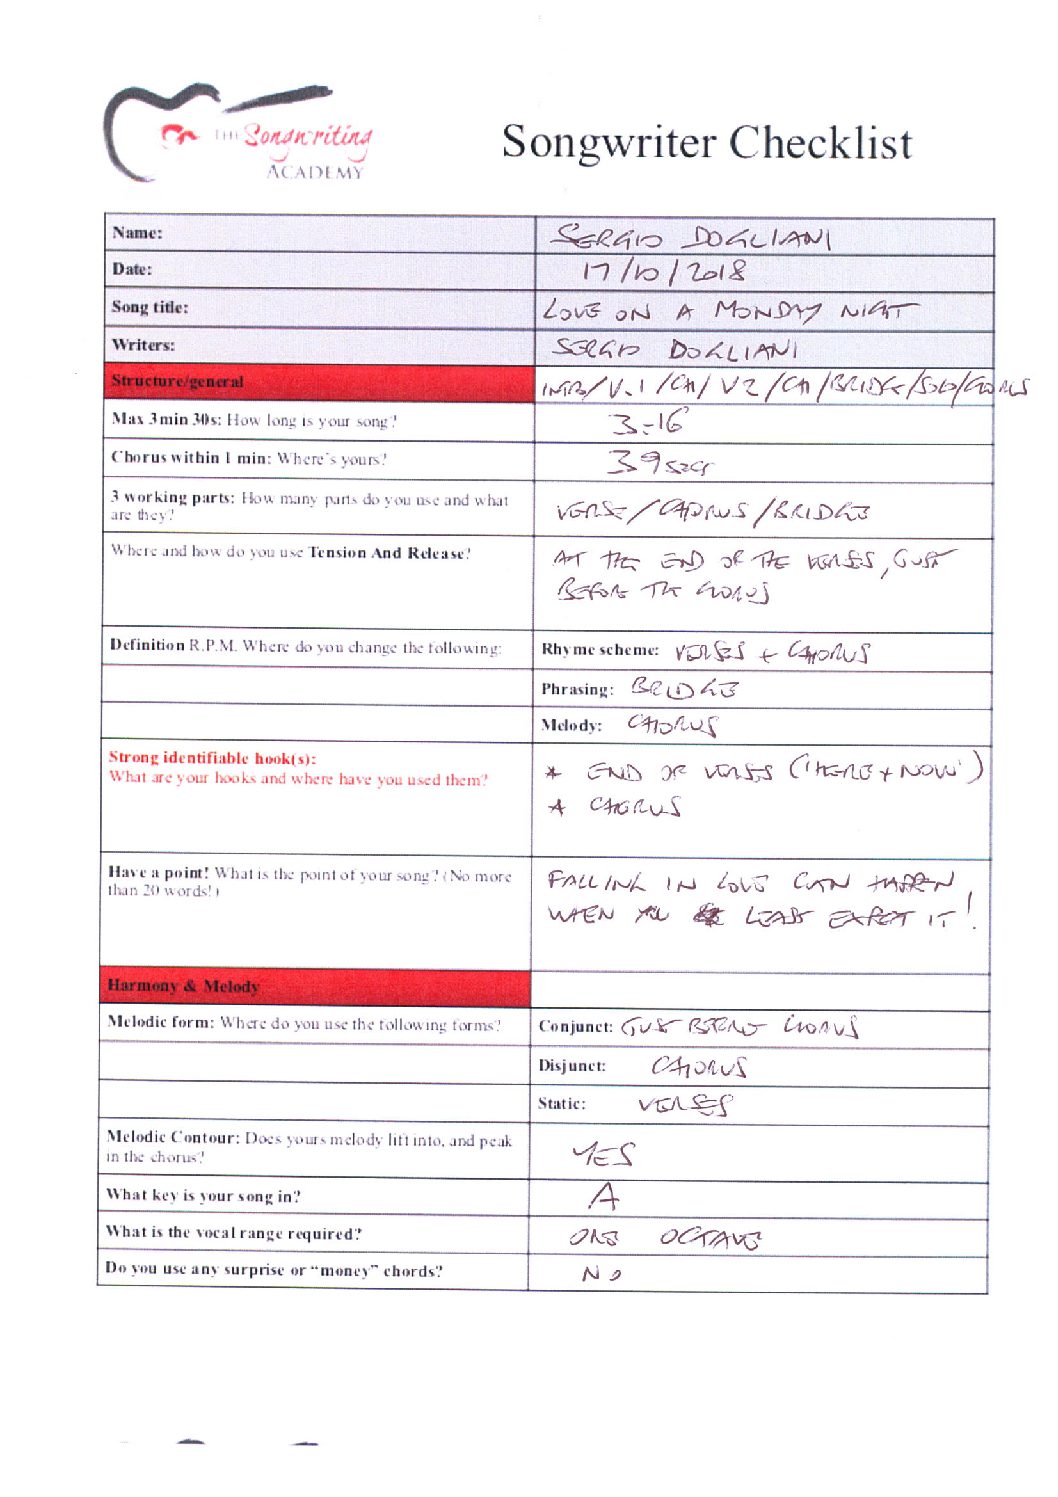 THE Songwriting
ACADEMY
Songwriter Checklist
Name: SERGIO DOGLIANI
Date: 17/10/2018
Song title: LOVE ON A MONDAY NIGHT
Writers: SERGIO DOGLIANI
Structure/general INTRO/V.1/CH/V2/CH/BRIDGE/SOLO/CHORUS
Max 3min 30s: How long is your song? 3-16
Chorus within 1 min: Where's yours? 39 secs
3 working parts: How many parts do you use and what
are they?
VERSE/CHORUS/BRIDGE
Where and how do you use Tension And Release? AT THE END OF THE VERSES, GUST
BEFORE THE CHORUS
Definition R.P.M. Where do you change the following: Rhyme scheme: VERSES + CHORUS
Phrasing: BRIDGE
Melody: CHORUS
Strong identifiable hook(s):
What are your hooks and where have you used them?
* END OF VERSES ('HERE + NOW')
* CHORUS
Have a point! What is the point of your song? (No more
than 20 words!)
FALLING IN LOVE CAN HAPPEN
WHEN YOU LEAST EXPECT IT!
Harmony & Melody
Melodic form: Where do you use the following forms? Conjunct: GUST BEFORE CHORUS
Disjunct: CHORUS
Static: VERSES
Melodic Contour: Does yours melody lift into, and peak
in the chorus?
YES
What key is your song in? A
What is the vocal range required? ONE OCTAVE
Do you use any surprise or "money" chords? NO